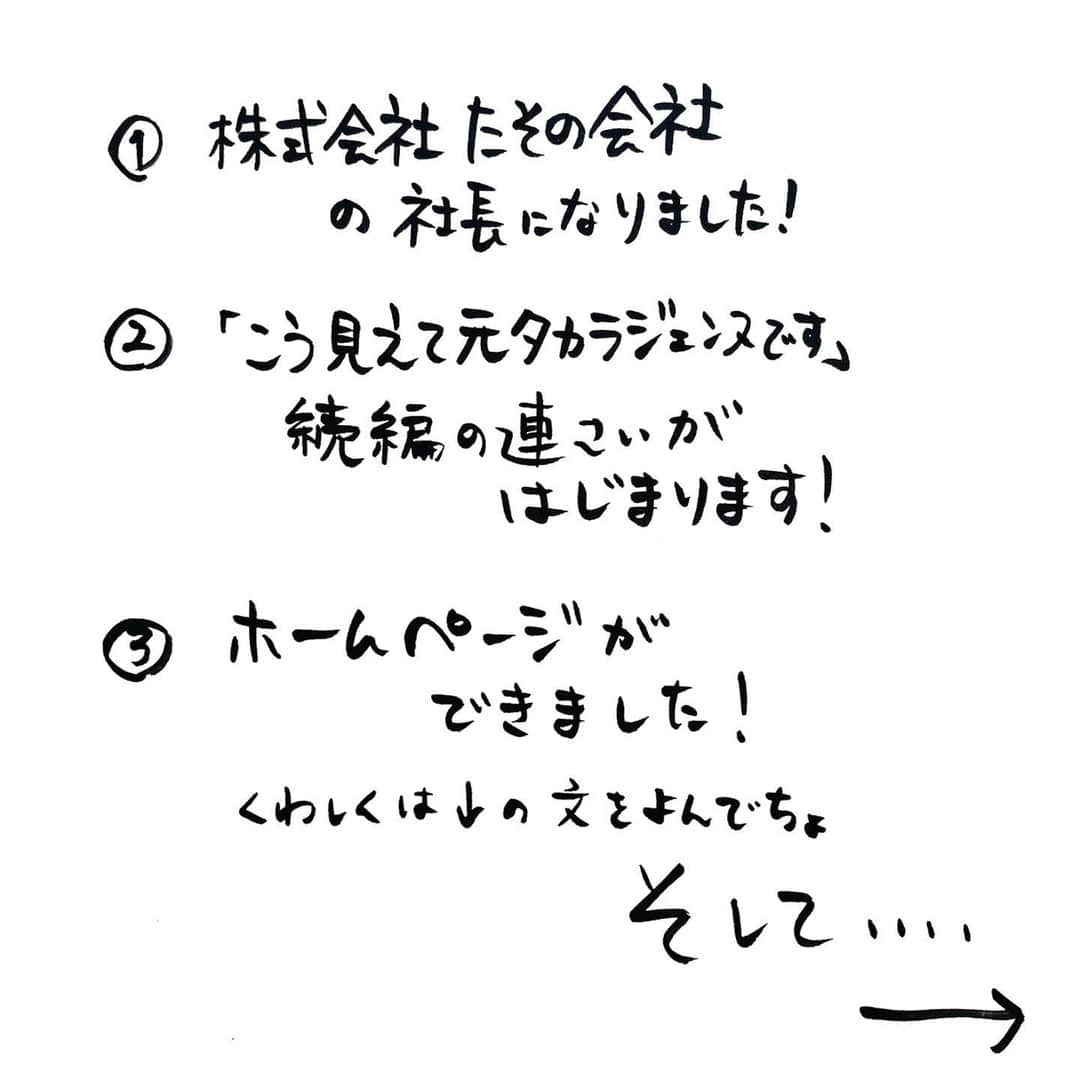 ① 株式会社 たその会社
の 社長になりました！
② 「こう見えて元タカラジェンヌです」
続編の連さいが
はじまります！
③ ホームページが
できました！
くわしくは↓の文をよんでちょ
そして‥‥
→